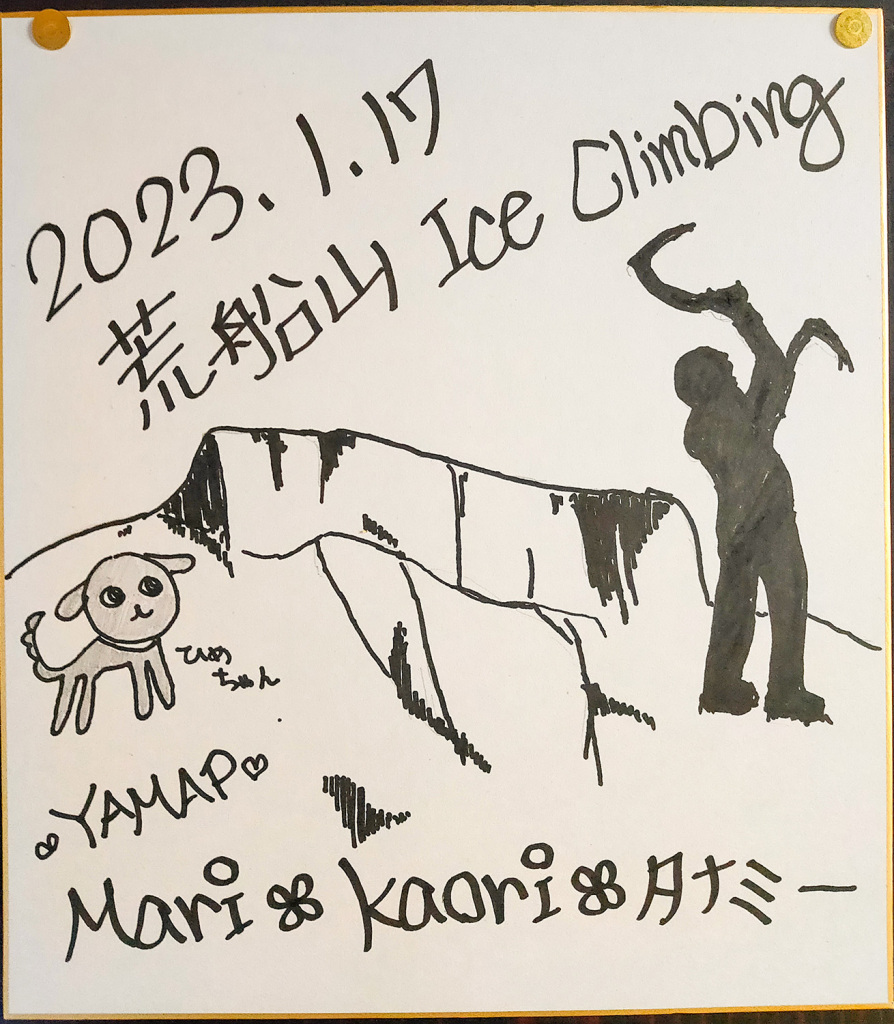 2023.1.17
荒船山 Ice Climbing
ひめ
ちゃん
♡YAMAP♡
Mari✿Kaori✿タナミー